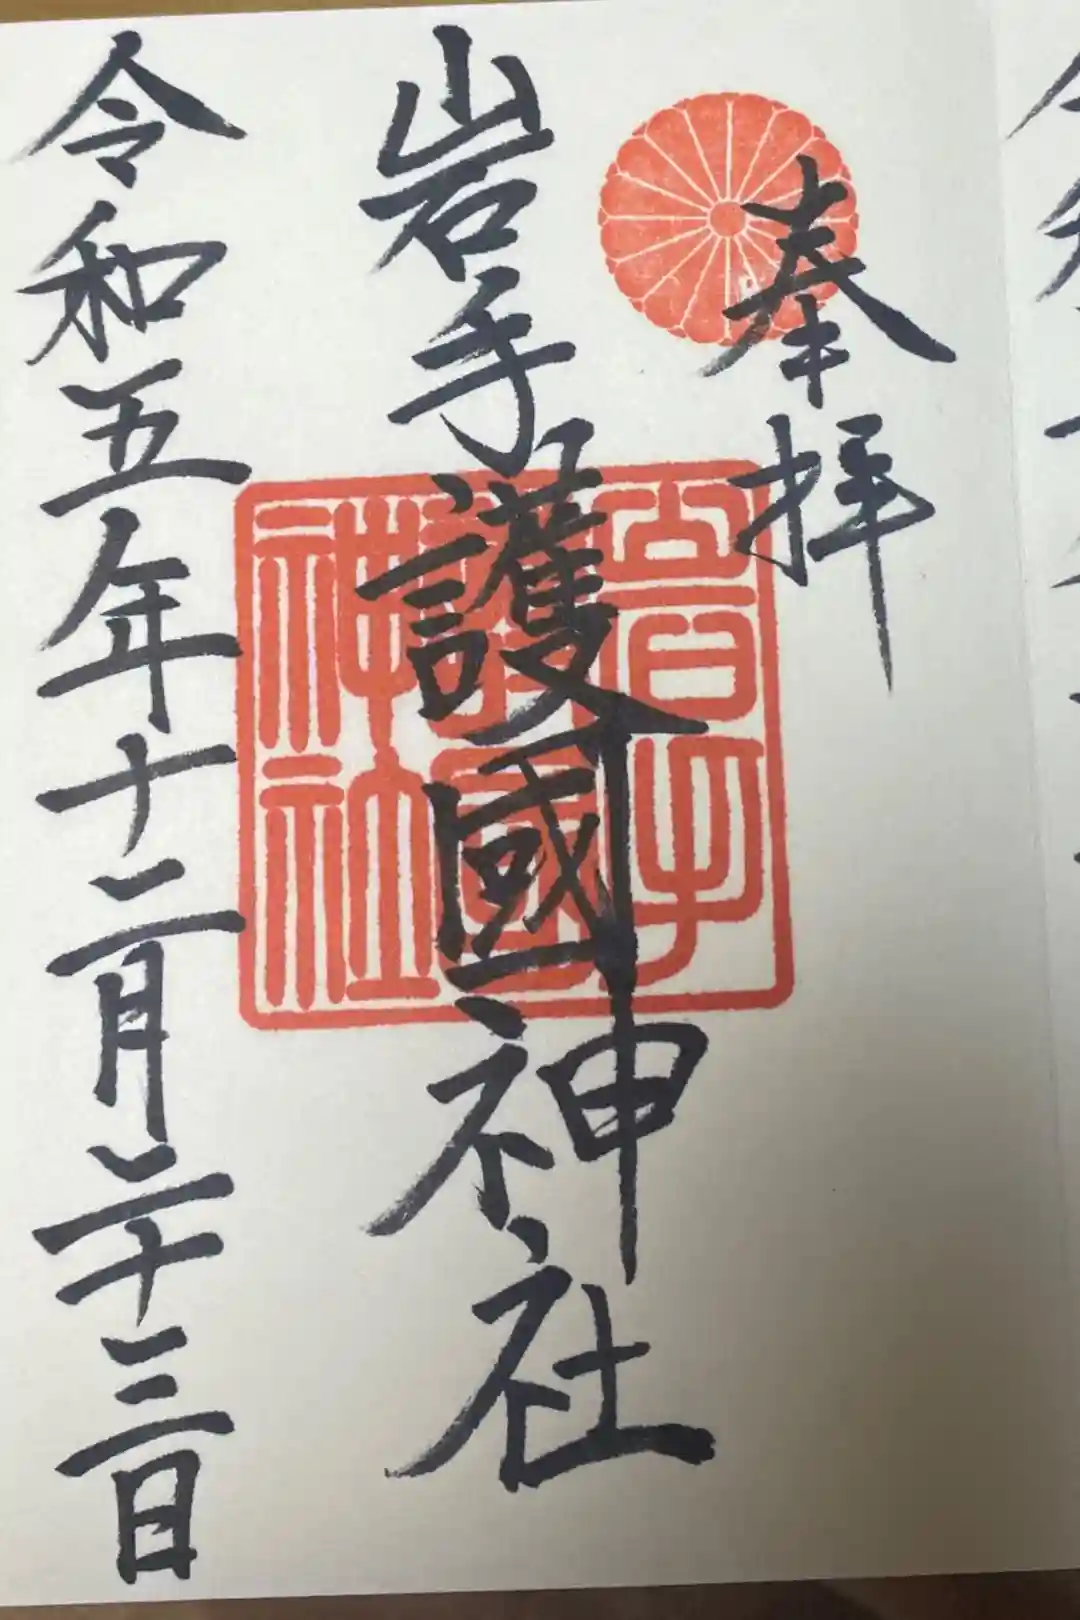 奉拝
岩手護國神社
岩手
護國
神社
令和五年十二月二十三日